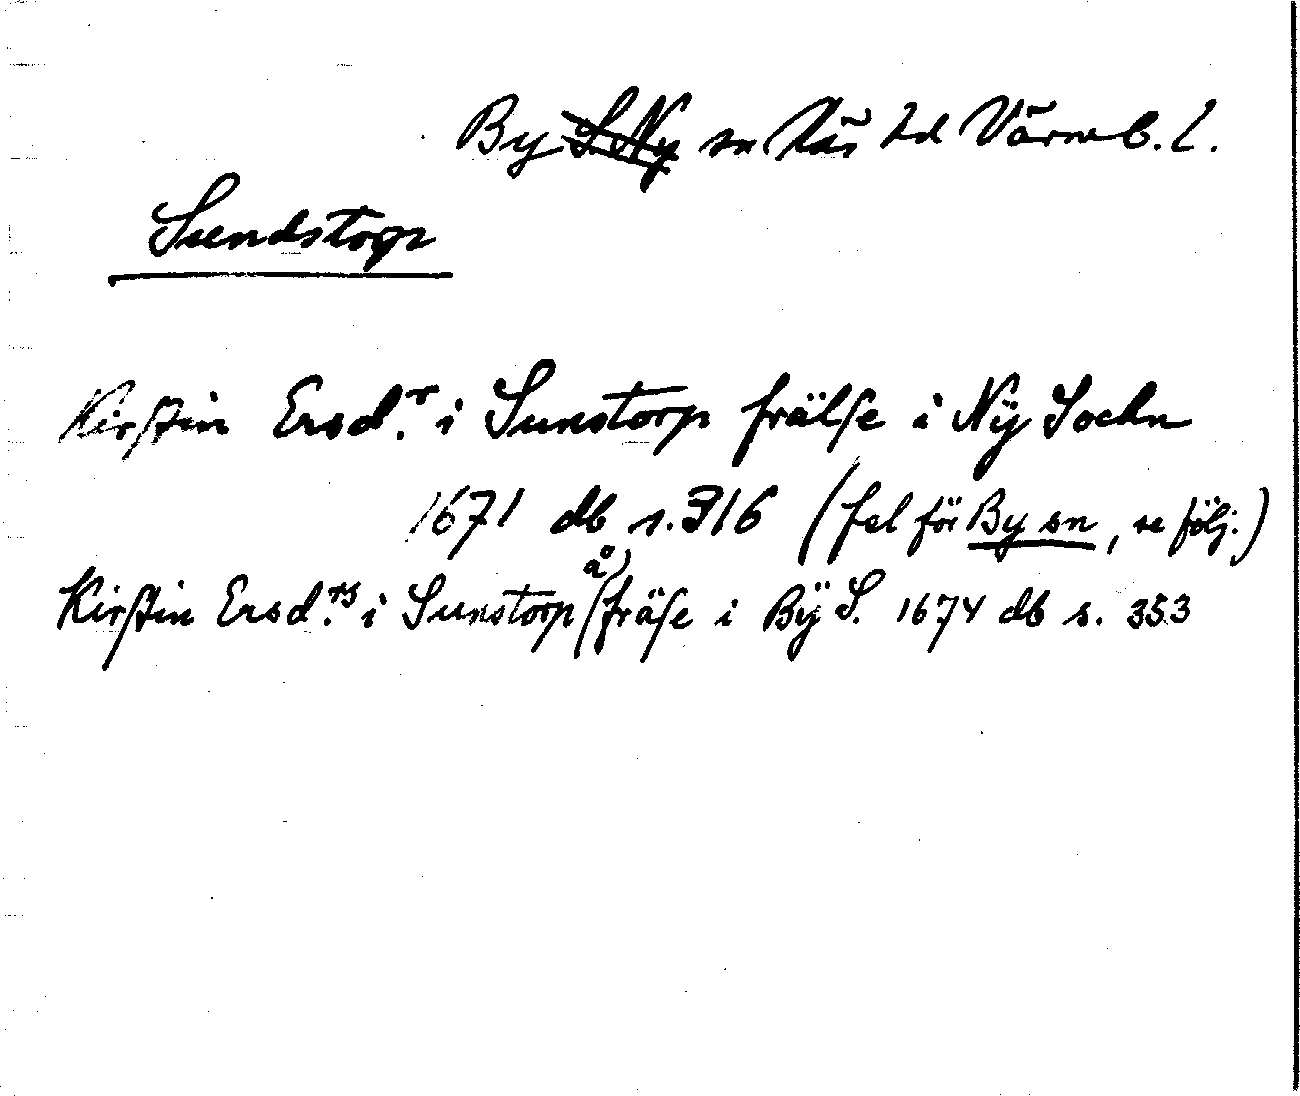 By S. Ny sn Näs hd Värmb. l.
Sundstorp
Kirstin Ersd.r i Sunstorp frälse i Nÿ Sochn
1671 db s. 316 (fel för By sn, se följ.)
Kirstin Ersd.rs i Sunstorp (å) fräse i Bÿ S. 1674 db s. 353